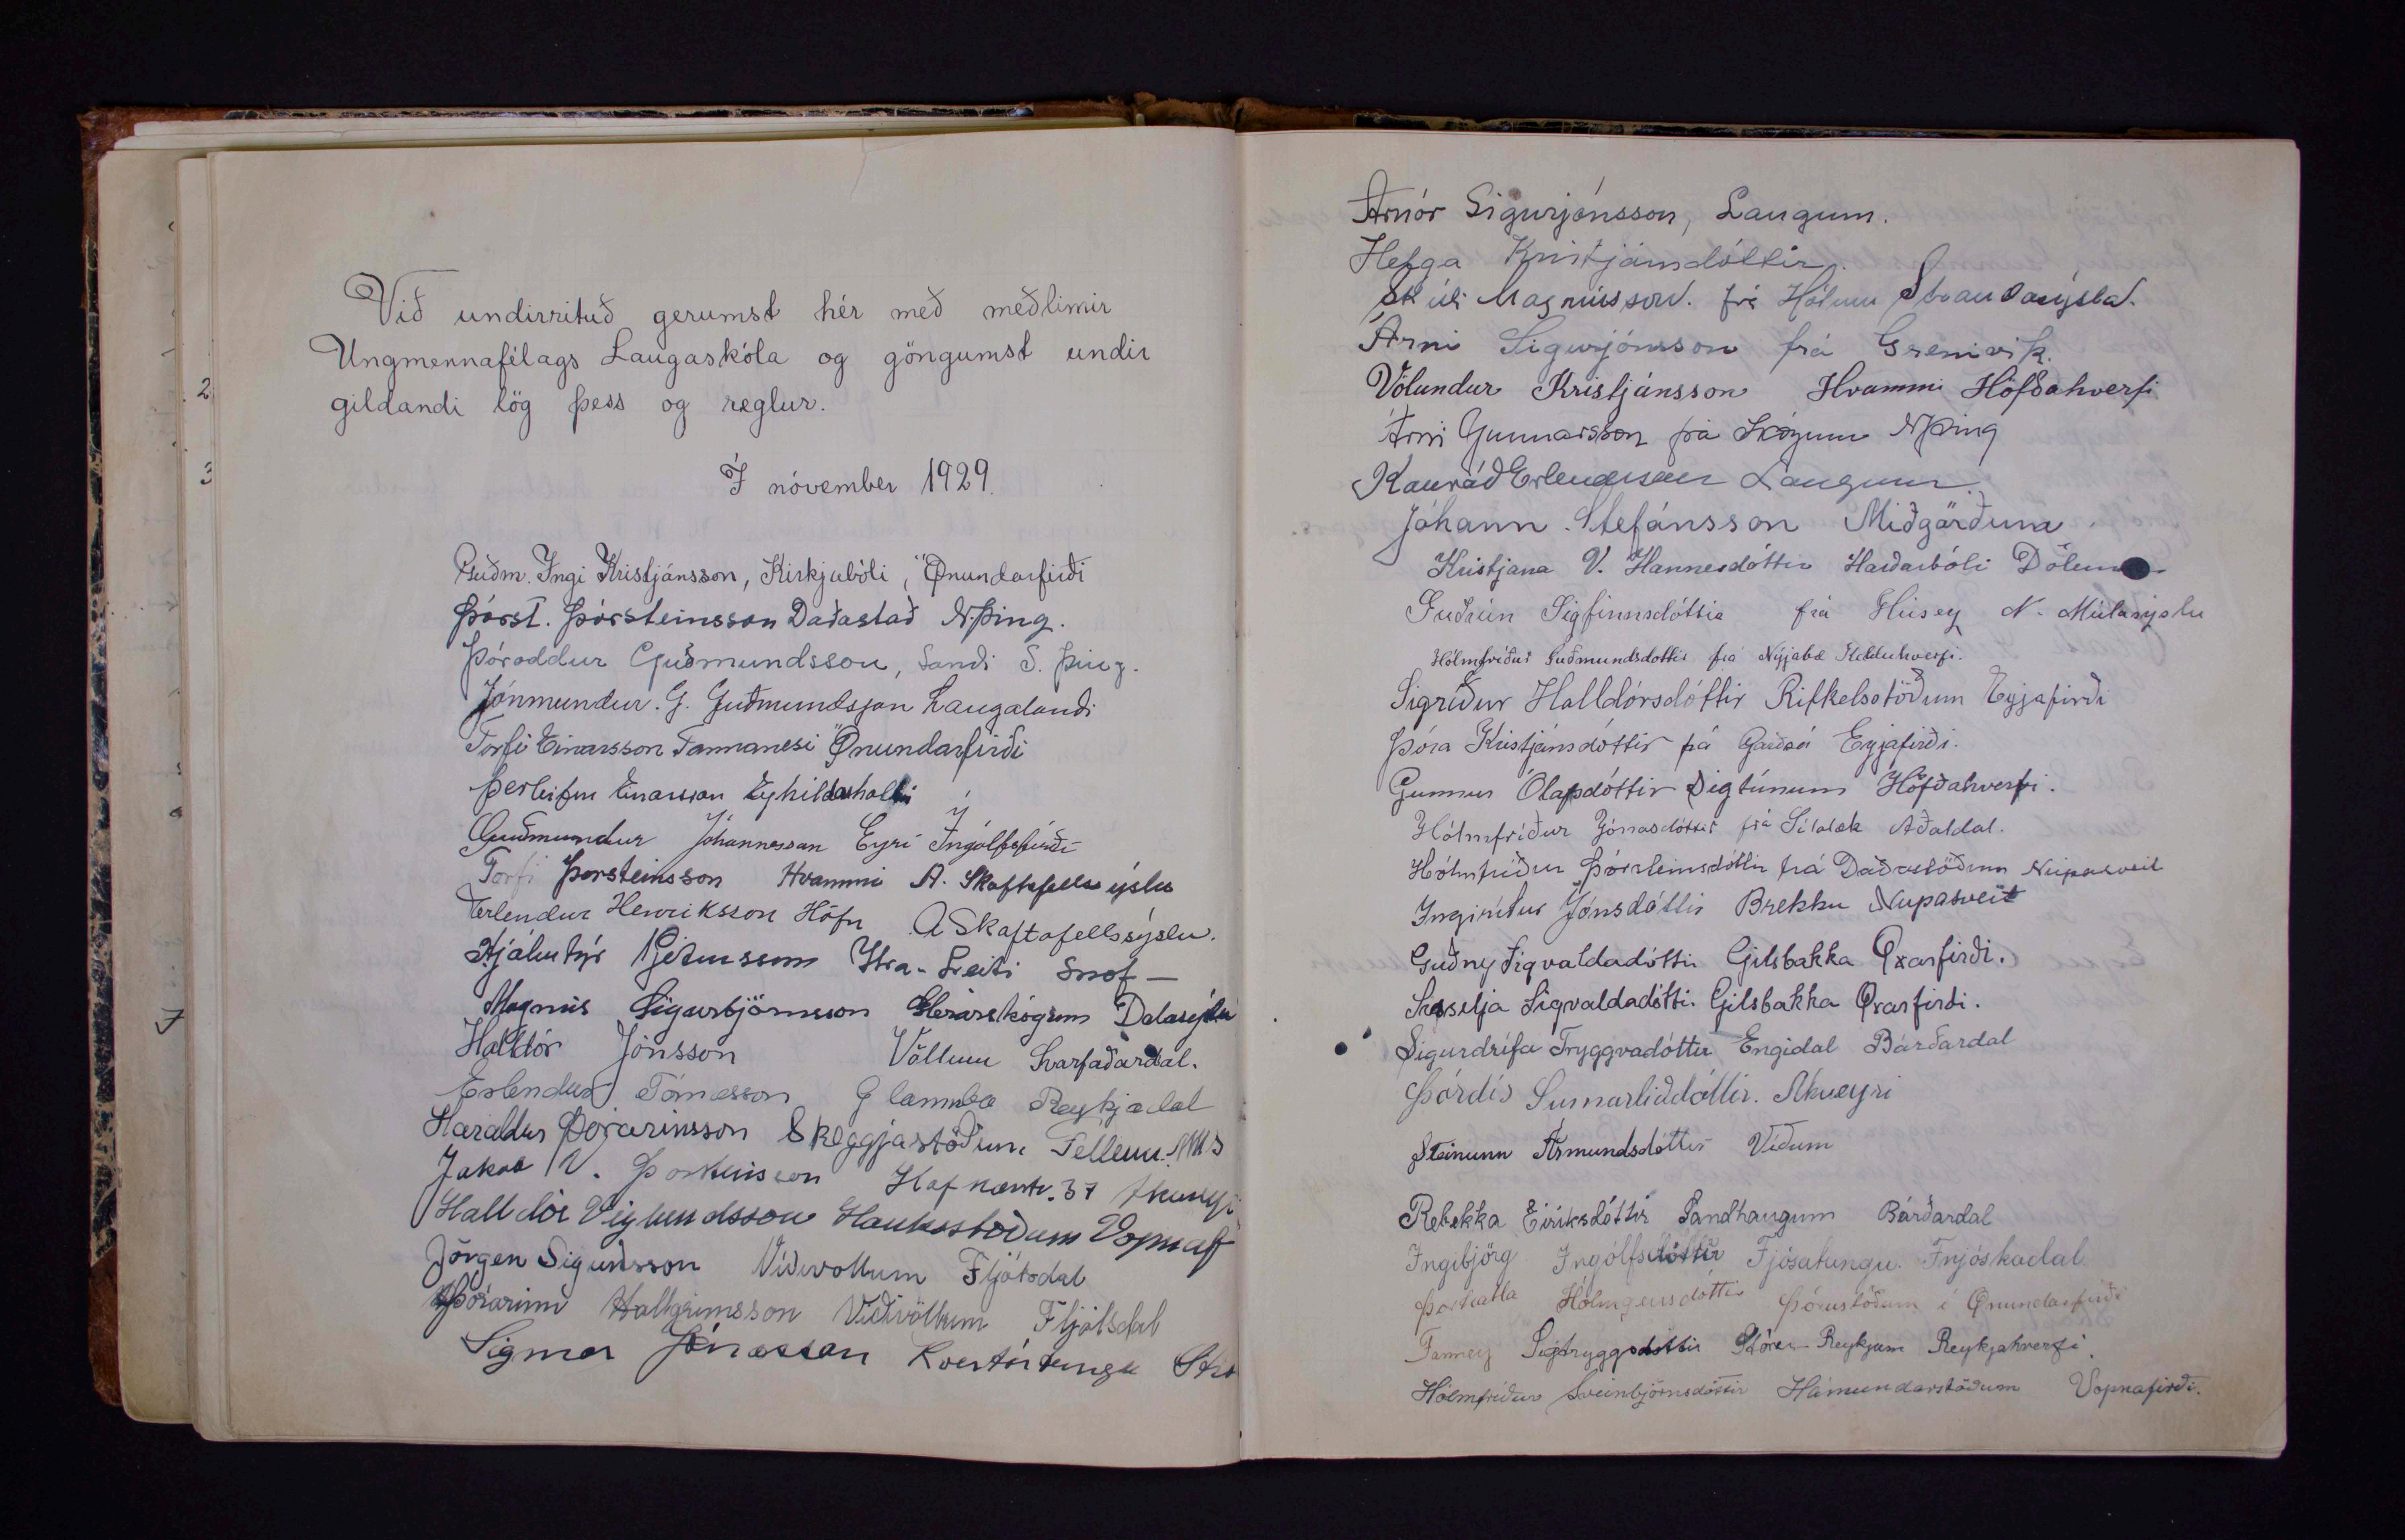 Við undirrituð gerumst hér með meðlimir
Ungmennafélags Laugaskóla og göngumst undir
gildandi lög þess og reglur.
Í nóvember 1929.
Guðm. Ingi Kristjánsson, Kirkjubóli, Önundarfirði
Þórst. Þórsteinsson Daðastað NÞing.
Þóroddur Guðmundsson, Sandi S. Þing.
Jónmundur. G. Guðmundsson Laugalandi
Torfi Einarsson Tannanesi Önundarfirði
Þerleifur Einarsson
Guðmundur Jóhannesson Eyri Ingólfsfirði
Torfi Þorsteinsson Hvammi A. Skaftafellssýslu
Erlendur Henriksson Höfn A Skaftafellssýslu.
Hjálmtýr Ytra-Leiti Snæf-
Magnús Sigurbjörnsson Glerárskógum Dalasýslu
Halldór Jónsson Völlum Svarfaðardal.
Erlendur Tómasson Reykjadal
Haraldur Þórarinsson Skeggjastöðum Fellum. NMS
Jakob V. Þorsteinsson Hafnarstr. 37 Akureyri
Halldór Víglundsson Hauksstöðum Vopnaf
Jörgen Sigurðsson Víðivöllum Fljótsdal
Þórarinn Hallgrímsson Víðivöllum Fljótsdal
Sigmar Jónasson
Arnór Sigurjónsson, Laugum.
Helga Kristjánsdóttir.
Skúli Magnússon. frá Hólum Strandasýslu.
Árni Sigurjónsson frá Grenivík.
Völundur Kristjánsson Hvammi Höfðahverfi
Árni Gunnarsson frá Skógum NÞing
Konráð Erlendsson Laugum.
Jóhann Stefánsson Miðgörðum
Kristjana V. Hannesdóttir Harðarbóli Dölum
Guðrún Sigfinnsdóttir frá Húsey N. Múlasýslu
Hólmfríður Guðmundsdóttir frá Nýjabæ Kelduhverfi.
Sigríður Halldórsdóttir Rifkelsstöðum Eyjafirði
Þóra Kristjánsdóttir frá Garðsá Eyjafirði.
Gunnur Ólafsdóttir Sigtúnum Höfðahverfi.
Hólmfríður Jónasdóttir frá Sílalæk Aðaldal.
Hólmfríður Þórsteinsdóttir frá Daðastöðum Núpasveit
Ingiríður Jónsdóttir Brekku Núpasveit
Guðný Sigvaldadóttir Gilsbakka Öxarfirði.
Sesselja Sigvaldadóttir Gilsbakka Öxarfirði.
Sigurdrífa Tryggvadóttir Engidal Bárðardal
Þórdís Sumarliðadóttir. Akureyri
Steinunn Ármundsdóttir Víðum
Rebekka Eiríksdóttir Sandhaugum Bárðardal
Ingibjörg Ingólfsdóttir Fjósatungu Fnjóskadal.
Þorkatla Hólmgeirsdóttir Þórustöðum í Önundarfirði
Fanney Sigtryggsdóttir Stóru-Reykjum Reykjahverfi.
Hólmfríður Sveinbjörnsdóttir Hámundarstöðum Vopnafirði.